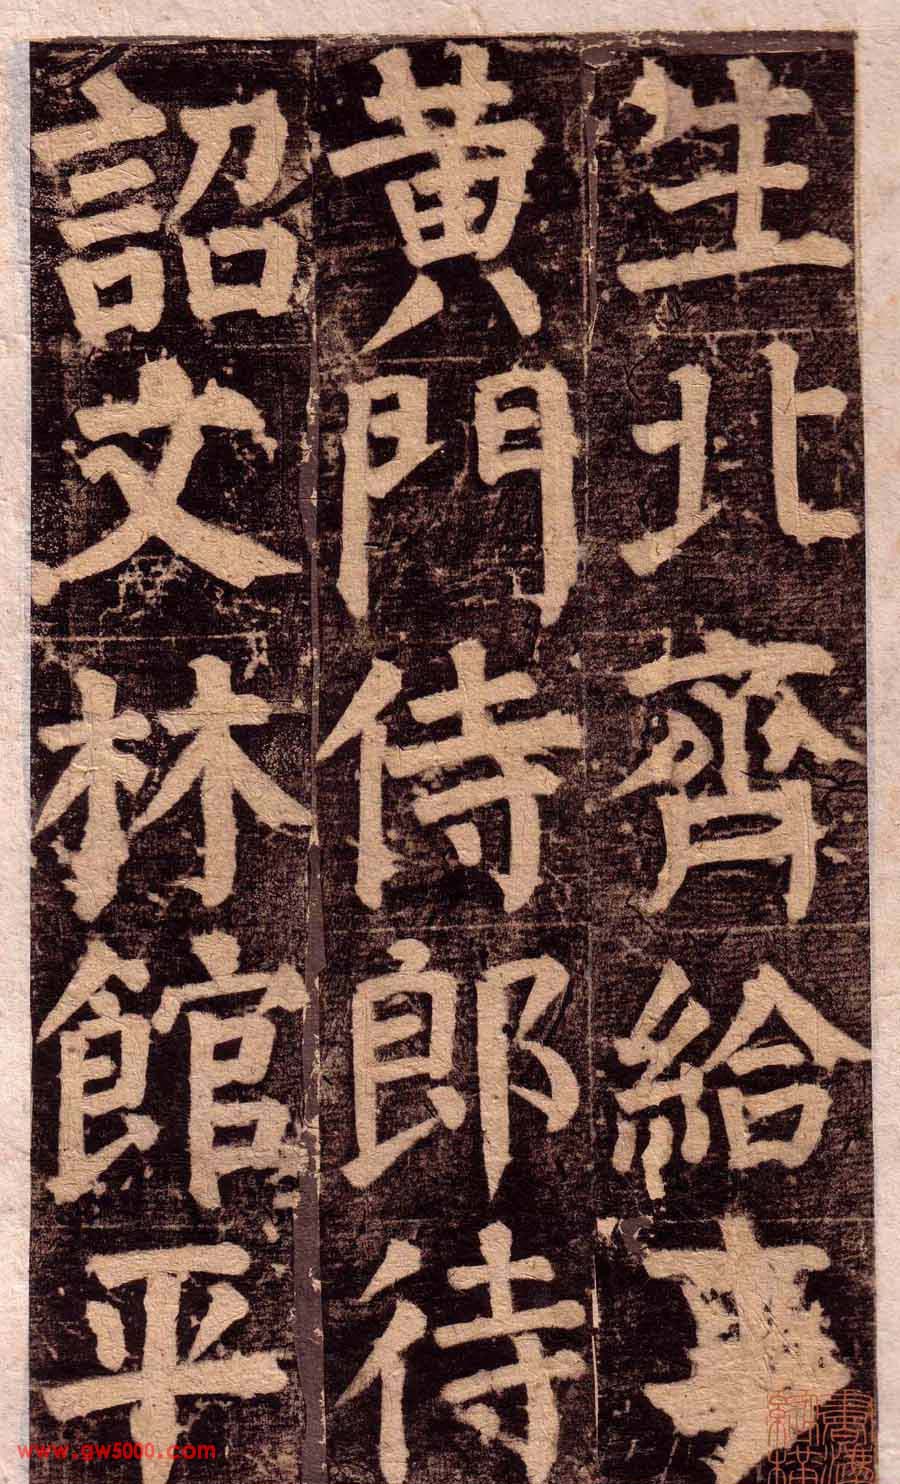 生北齊給事
黃門侍郎待
詔文林館平
www.gw5000.com